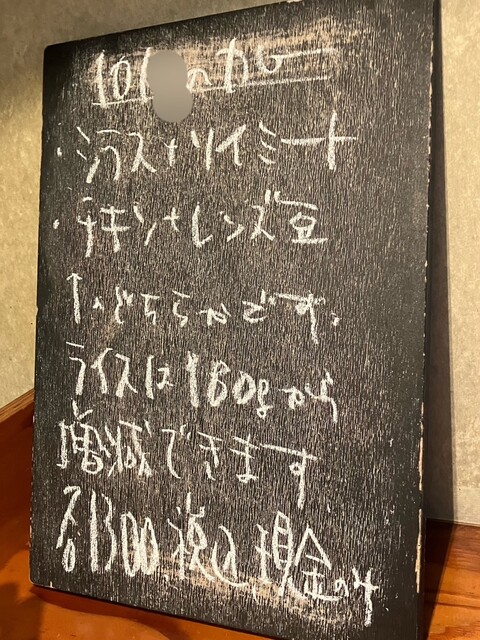 10 のカレー
・シラス+ソイミート
・チキン+レンズ豆
↑のどちらかです。
ライスは180gから
増減できます
各1300 税込、現金のみ